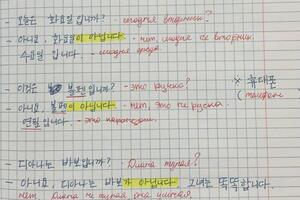 - 오늘은 화요일 입니까? - сегодня вторник?
- 아니요, 화요일이 아닙니다 - нет, сегодня не вторник
수요일 입니다 - сегодня среда.
- 이것은 볼펜 입니까? - это ручка?
- 아니요, 볼펜이 아닙니다 - нет, это не ручка.
연필 입니다 - это карандаш.
※ 휴대폰
(телефон
- 디아나는 바보입니까? Диана тупая?
- 아니요, 디아나는 바보가 아닙니다. 그녀는 똑똑합니다.
нет Диана не тупая она умная